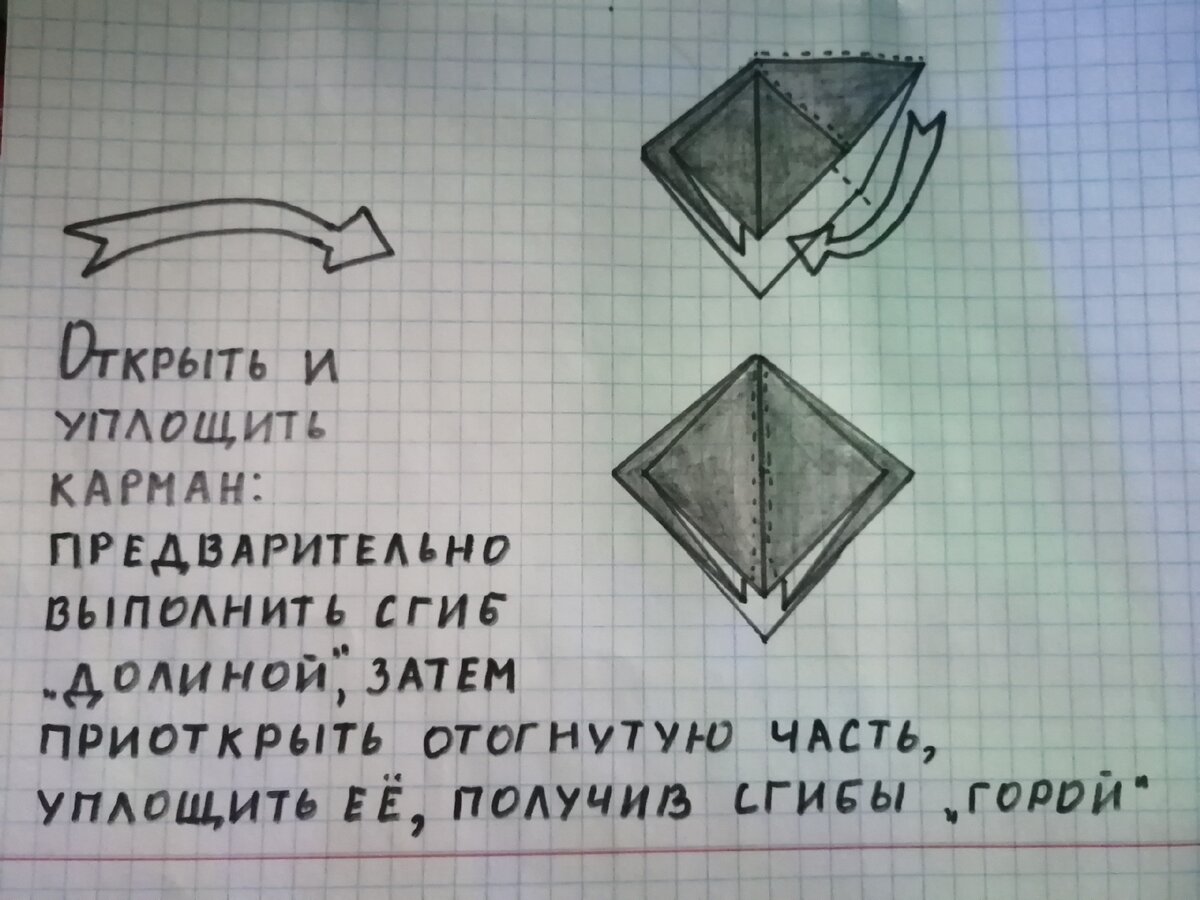 Открыть и
уплощить
карман:
предварительно
выполнить сгиб
„долиной", затем
приоткрыть отогнутую часть,
уплощить её, получив сгибы „горой"